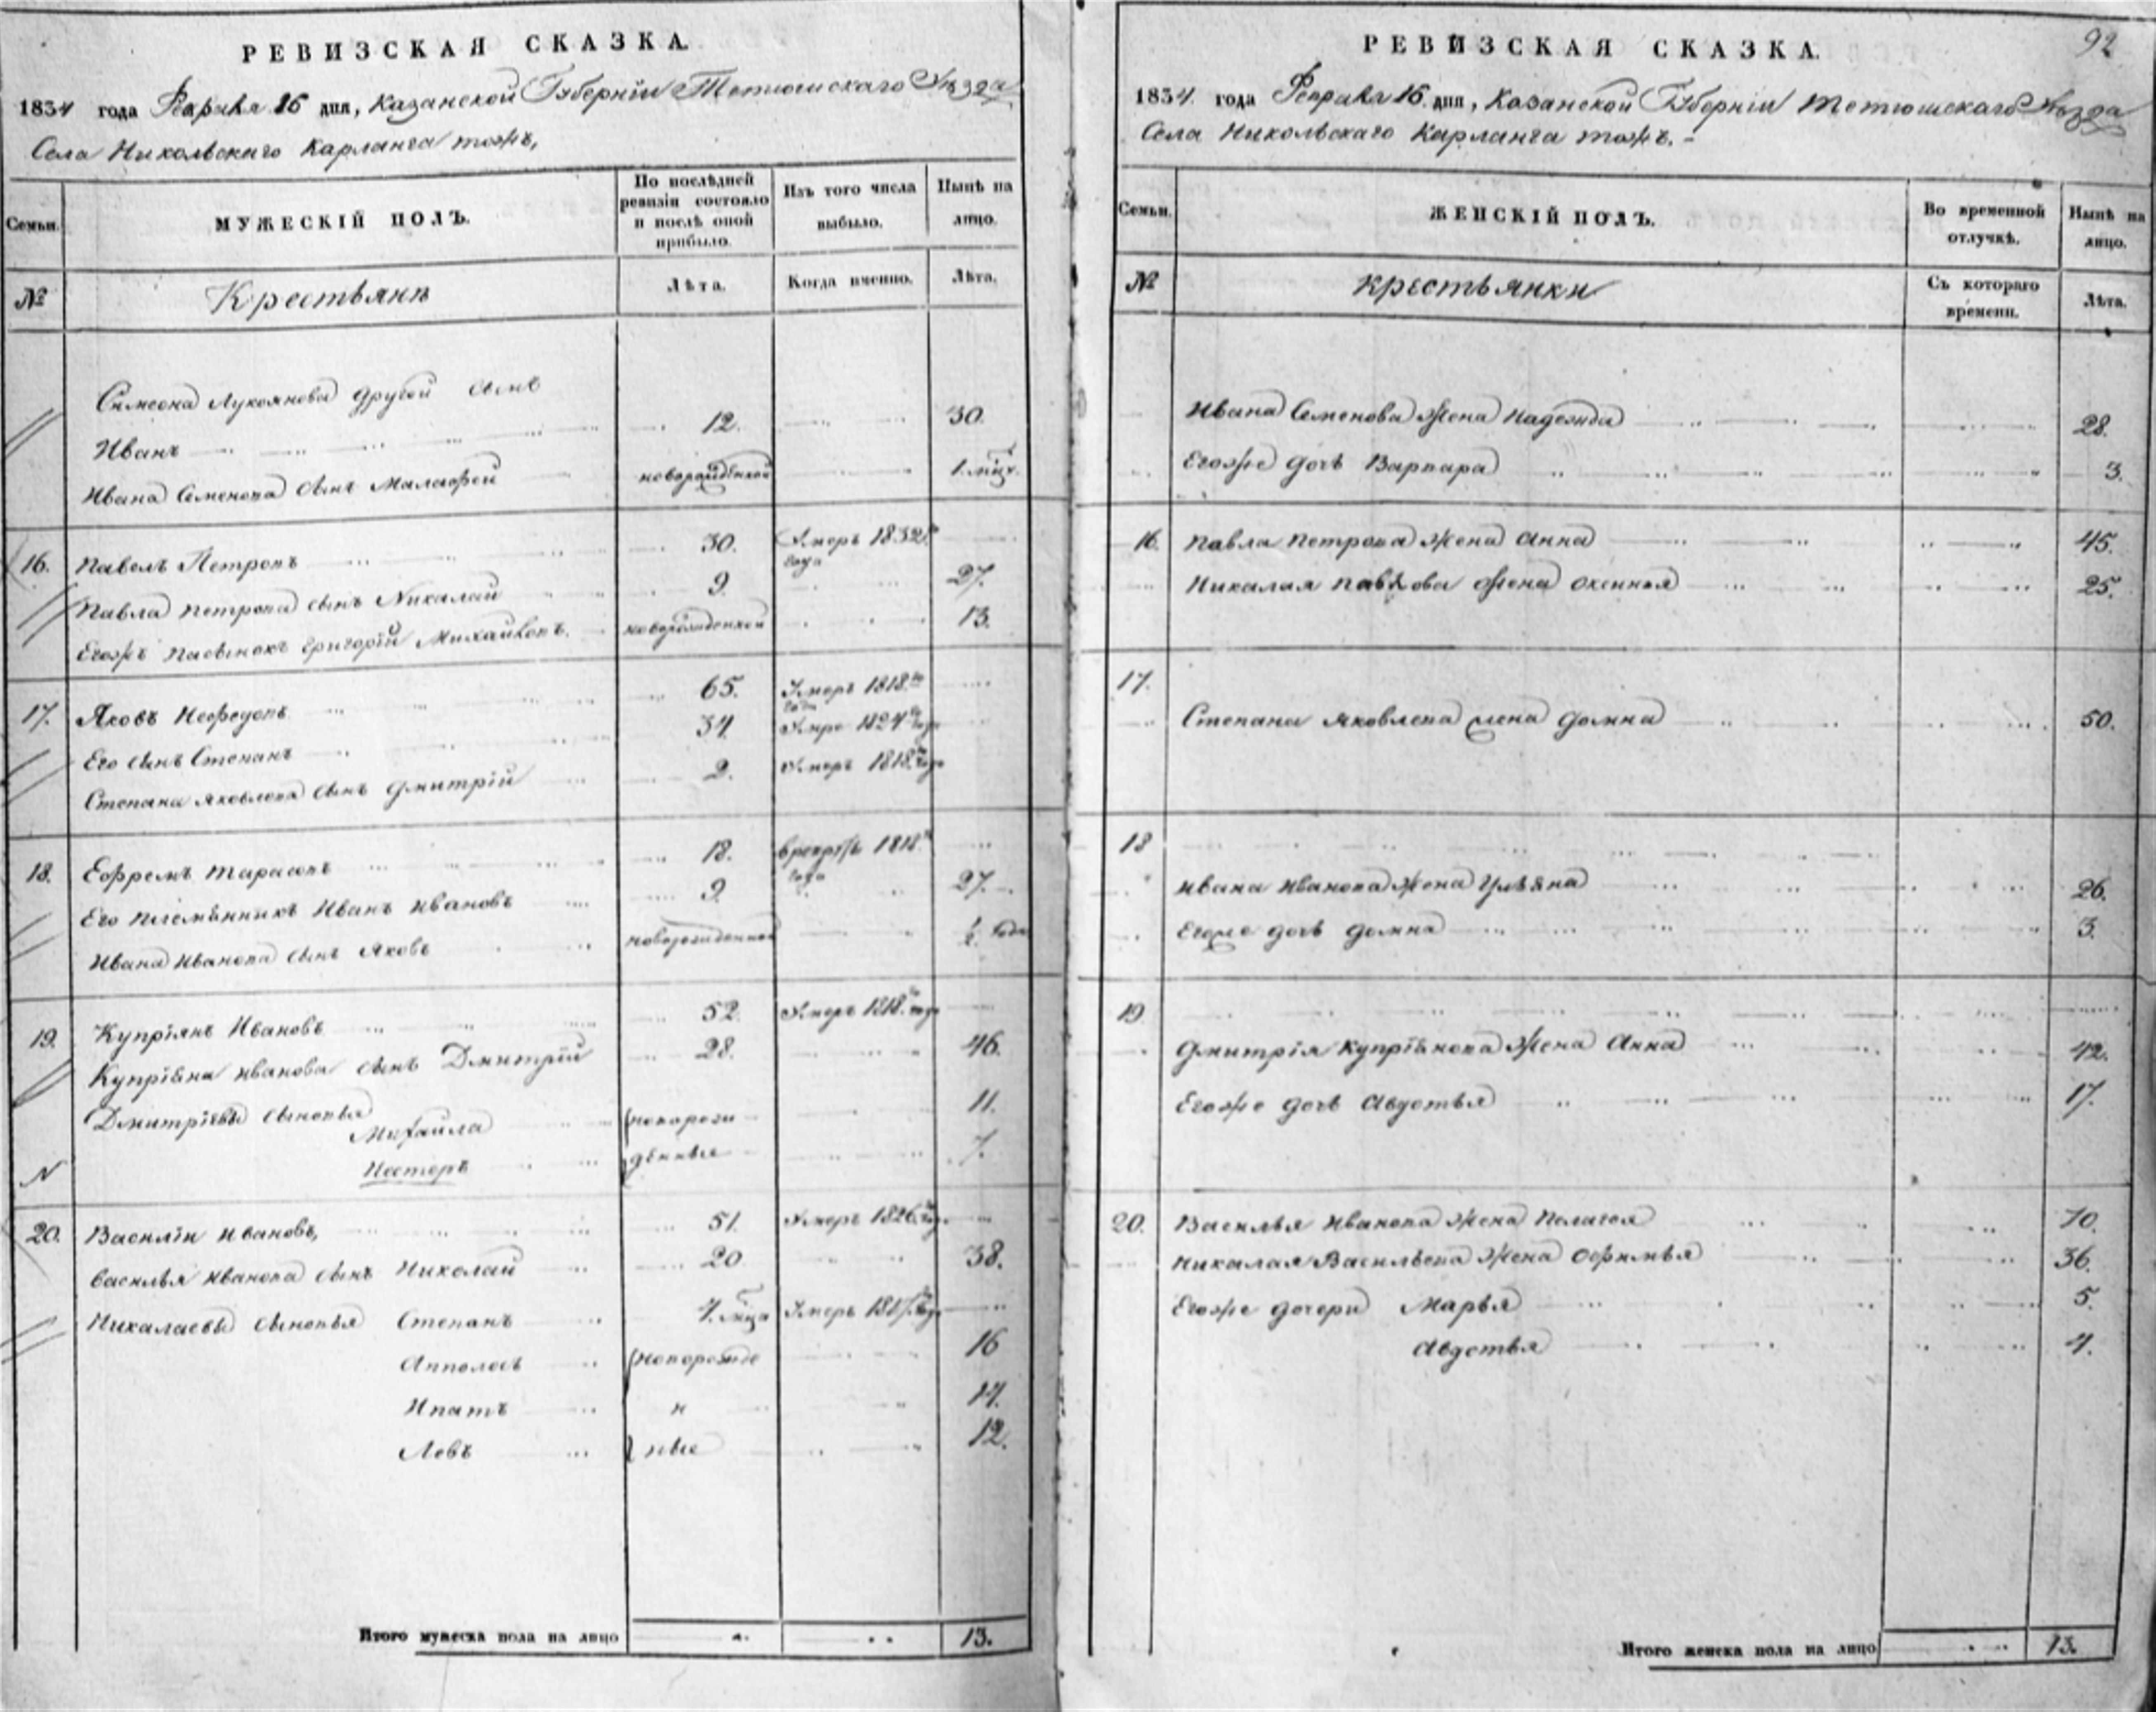 РЕВИЗСКАЯ СКАЗКА.
1834 года Февраля 16 дня, Казанской Губерніи Тетюшскаго Уѣзда
Села Никольскаго Карланга тожъ,
Семьи.
МУЖЕСКІЙ ПОЛЪ.
По послѣдней ревизіи состояло и послѣ оной прибыло.
Изъ того числа выбыло.
Нынѣ на лицо.
№
Крестьяне
Лѣта.
Когда именно.
Лѣта.
Симеона Лукоянова другой сынъ
Иванъ 12. 30.
Ивана Семенова сынъ Малафей новорожденной 1. мѣц.
16. Павелъ Петровъ 30. Умеръ 1832го года
Павла Петрова сынъ Николай 9. 27.
Егожъ пасынокъ Григорій Михайловъ. новорожденной 13.
17. Яковъ Нефедовъ 65. Умеръ 1818го года
Его сынъ Степанъ 34 Умре 1824го году
Степана Яковлева сынъ Дмитрій 2. Умеръ 1818го году
18. Ефремъ Тарасовъ 18. 1818го года
Его племянникъ Иванъ Ивановъ 9 27.
Ивана Иванова сынъ Яковъ новорожденной 1/2 года
19. Купріянъ Ивановъ 52. Умеръ 1818го году
Купріяна Иванова сынъ Дмитрій 28. 46.
Дмитріевы сыновья Михайла новорож 11.
N Нестеръ денные 7.
20. Василіи Ивановъ, 51. Умеръ 1826го году
Василья Иванова сынъ Николай 20 38.
Николаевы сыновья Степанъ 4. мѣца Умеръ 1817го году
Апполосъ новорожде 16
Ипатъ н 14.
Левъ ные 12.
Итого мужеска пола на лицо 13.
92
РЕВИЗСКАЯ СКАЗКА.
1834. года Февраля 16. дня, Казанской Губерніи Тетюшскаго Уѣзда
Села Никольскаго Карланга тожъ.
Семьи.
ЖЕНСКІЙ ПОЛЪ.
Во временной отлучкѣ.
Нынѣ на лицо.
№
Крестьянки
Съ котораго времени.
Лѣта.
Ивана Семенова жена Надежда 28.
Егоже дочь Варвара 3.
16. Павла Петрова жена Анна 45.
Николая Павлова жена Оксинья 25.
17.
Степана Яковлева жена Домна 50.
18
Ивана Иванова жена Ульяна 26.
Егоже дочь Домна 3.
19
Дмитрія Купріянова жена Анна 42.
Егоже дочь Авдотья 17.
20. Василья Иванова жена Пелагея 70.
Николая Васильева жена Офимья 36.
Егоже дочери Марья 5.
Авдотья 4.
Итого женска пола на лицо 13.